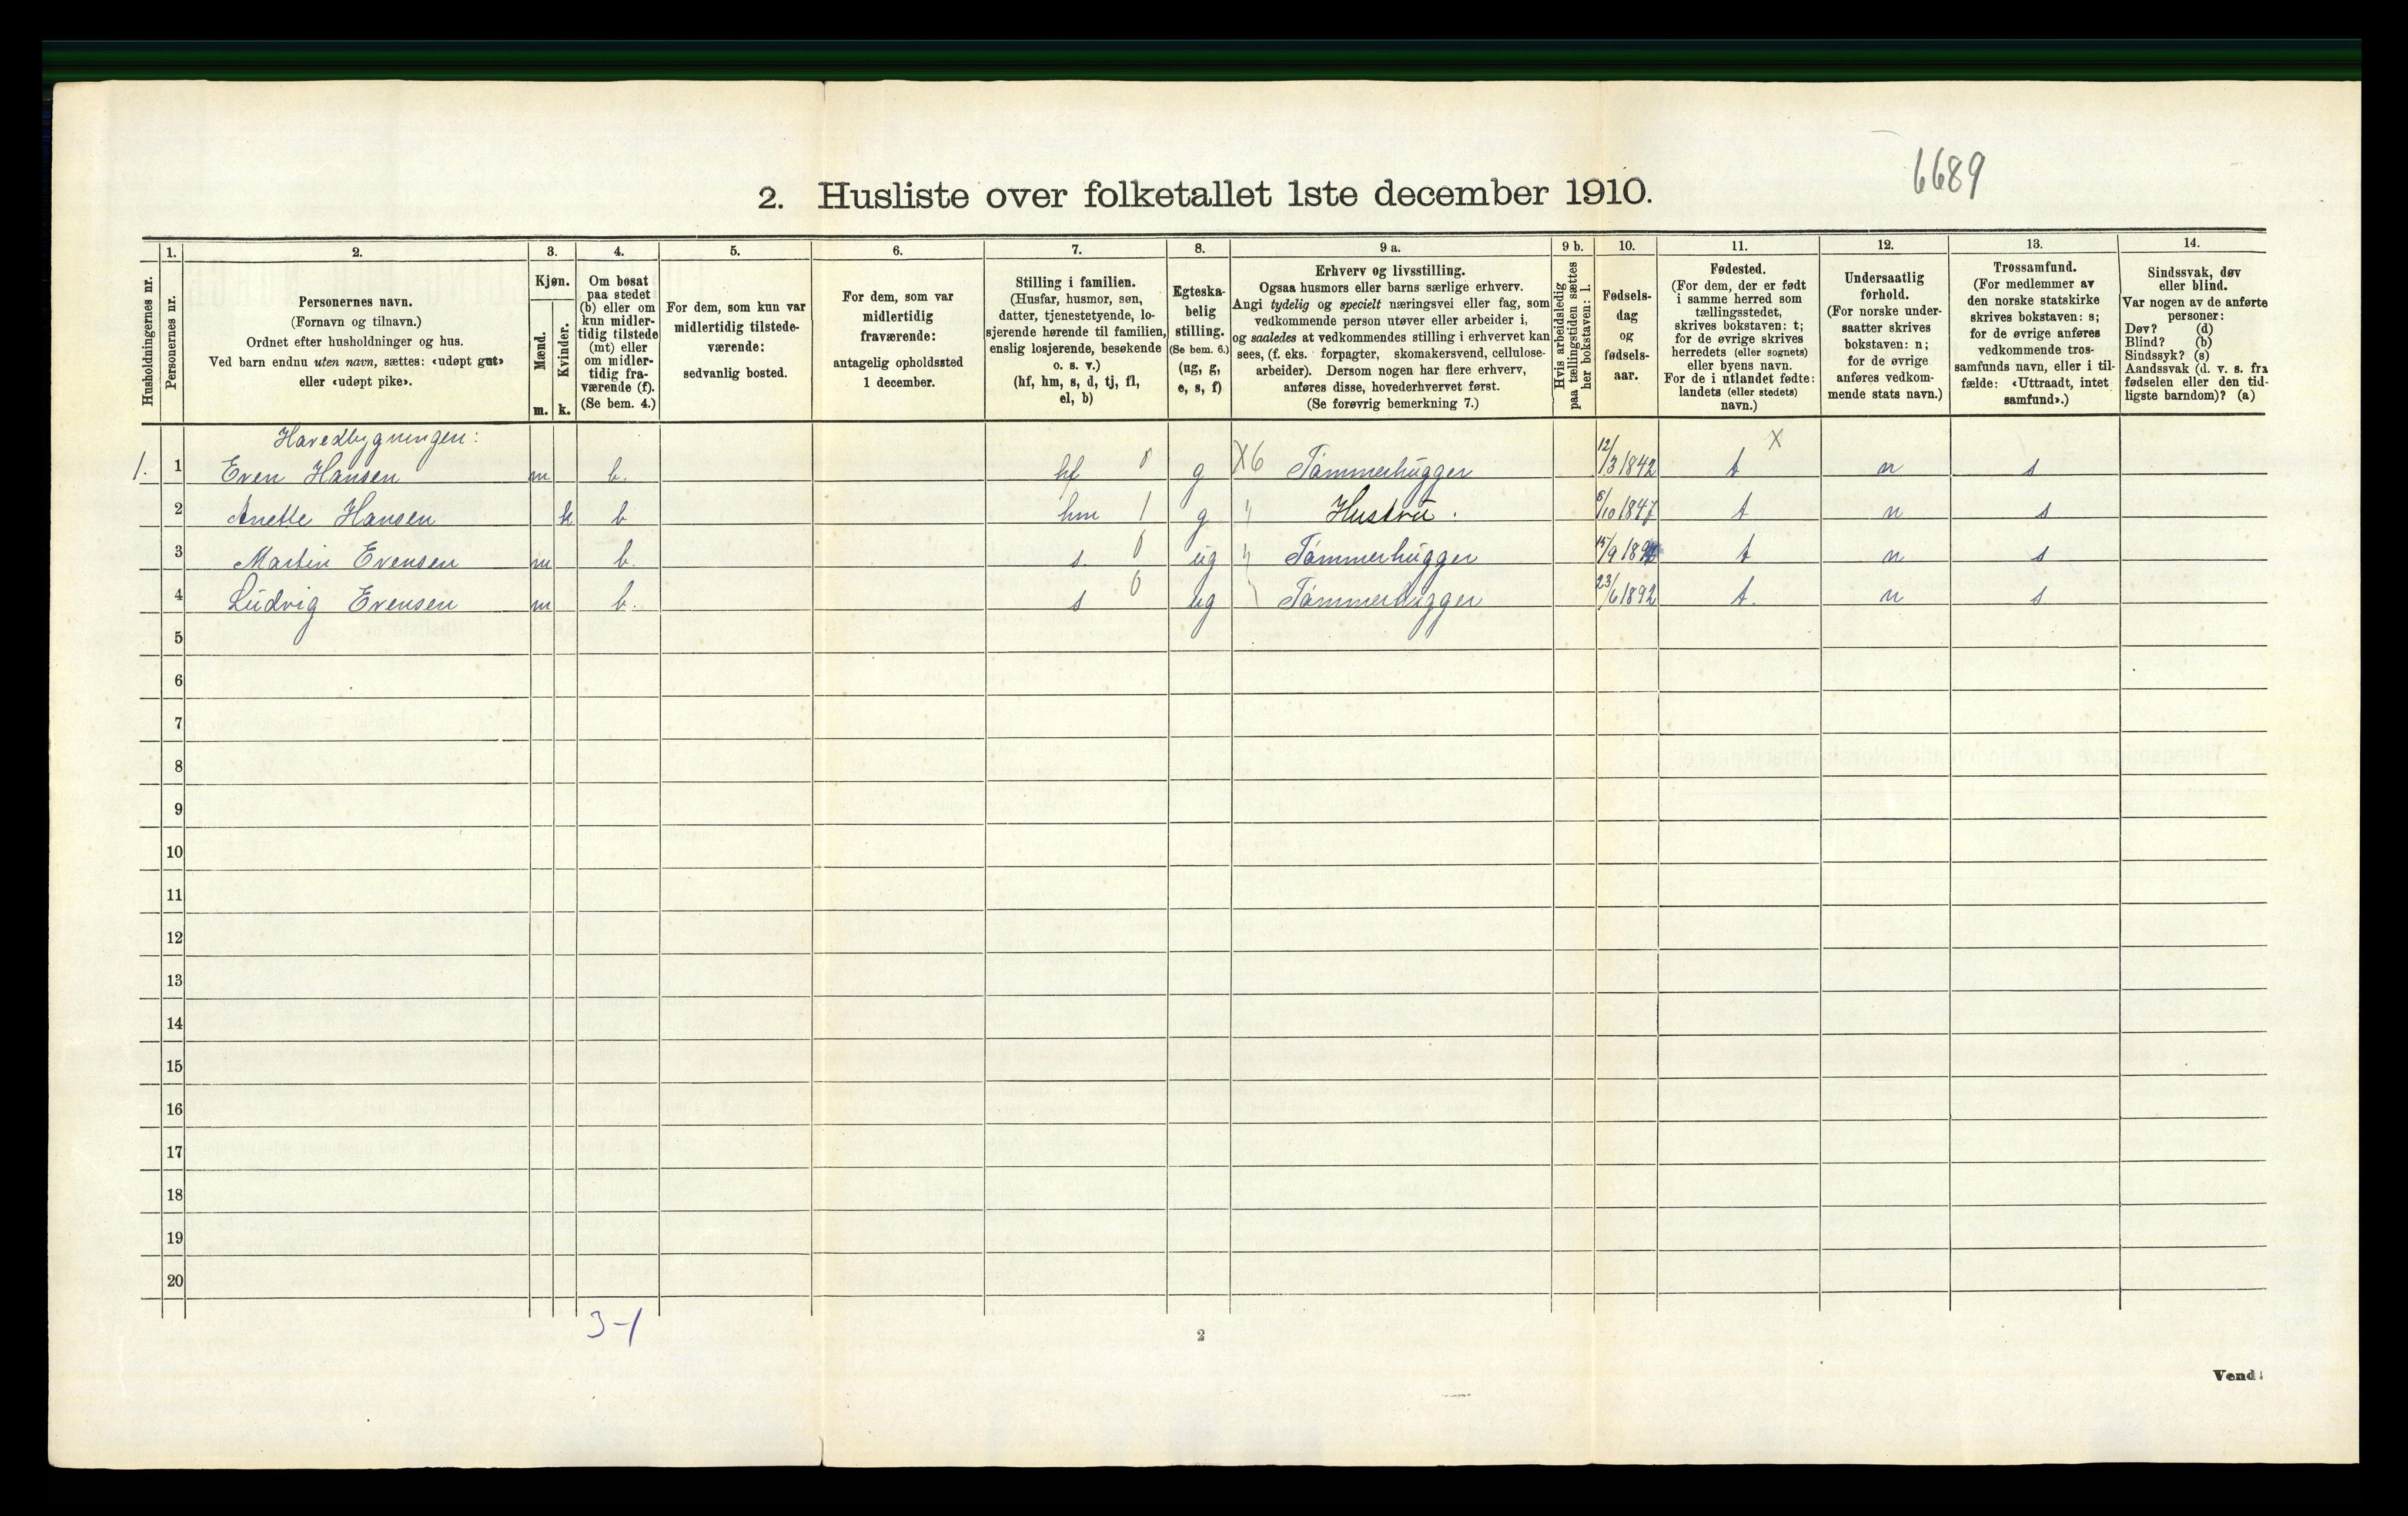 6689
2. Husliste over folketallet 1ste december 1910.
Husholdningernes nr.
1.
Personernes nr.
2.
Personernes navn.
(Fornavn og tilnavn.)
Ordnet efter husholdninger og hus.
Ved barn endnu uten navn, sættes: «udøpt gut»
eller «udøpt pike».
3.
Kjøn.
Mænd.
Kvinder.
m. k.
4.
Om bosat
paa stedet
(b) eller om
kun midler-
tidig tilstede
(mt) eller
om midler-
tidig fra-
værende (f).
(Se bem. 4.)
5.
For dem, som kun var
midlertidig tilstede-
værende:
sedvanlig bosted.
6.
For dem, som var
midlertidig
fraværende:
antagelig opholdssted
1 december.
7.
Stilling i familien.
(Husfar, husmor, søn,
datter, tjenestetyende, lo-
sjerende hørende til familien,
enslig losjerende, besøkende
o. s. v.)
(hf, hm, s, d, tj, fl,
el, b)
8.
Egteska-
belig
stilling.
(Se bem. 6.)
(ug, g,
e, s, f)
9 a.
Erhverv og livsstilling.
Ogsaa husmors eller barns særlige erhverv.
Angi tydelig og specielt næringsvei eller fag, som
vedkommende person utøver eller arbeider i,
og saaledes at vedkommendes stilling i erhvervet kan
sees, (f. eks. forpagter, skomakersvend, cellulose-
arbeider). Dersom nogen har flere erhverv,
anføres disse, hovederhvervet først.
(Se forøvrig bemerkning 7.)
9 b.
Hvis arbeidsledig
paa tællingstiden sættes
her bokstaven: l.
10.
Fødsels-
dag
og
fødsels-
aar.
11.
Fødested.
(For dem, der er født
i samme herred som
tællingsstedet,
skrives bokstaven: t;
for de øvrige skrives
herredets (eller sognets)
eller byens navn.
For de i utlandet fødte:
landets (eller stedets)
navn.)
12.
Undersaatlig
forhold.
(For norske under-
saatter skrives
bokstaven: n;
for de øvrige
anføres vedkom-
mende stats navn.)
13.
Trossamfund.
(For medlemmer av
den norske statskirke
skrives bokstaven: s;
for de øvrige anføres
vedkommende tros-
samfunds navn, eller i til-
fælde: «Uttraadt, intet
samfund».)
14.
Sindssvak, døv
eller blind.
Var nogen av de anførte
personer:
Døv? (d)
Blind? (b)
Sindssyk? (s)
Aandssvak (d. v. s. fra
fødselen eller den tid-
ligste barndom)? (a)
Havedbygningen:
1. 1 Even Hansen m b. hf 0 g X6 Tømmerhugger 12/3 1842 t X n s
2 Anette Hansen k b hm 1 g " Hustru. 6/10 1847 t n s
3 Martin Evensen m b. s. 0 ug " Tømmerhugger 15/9 189 t n s
4 Ludvig Evensen m b. s 0 ug Tømmerhugger 23/6 1892 t. n s
5
6
7
8
9
10
11
12
13
14
15
16
17
18
19
20
3-1
2
Vend!